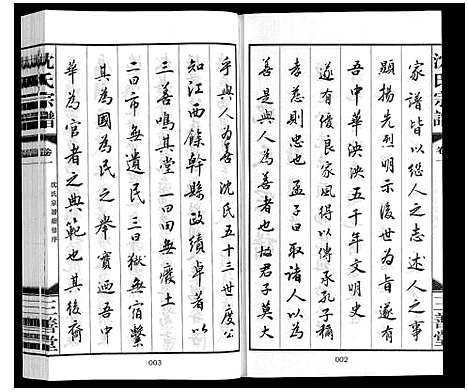 沈氏宗譜
卷一
三善堂
家譜皆以继人之志述人之事
顯揚先烈明示後世為旨遂有
吾中華泱泱五千年文明史
遂有優良家風得以傳承孔子稱
孝慈則忠孟子曰取諸人以為善
是與人為善者也故君子莫大
002
乎與人為善沈氏五十三世度公
知江西餘幹縣政績卓著以
三善鳴其堂一曰田無廢土
二曰市無遺民三曰獄無宿繫
為國為民之舉實迺吾中
華為官者之典範也其後裔
003
沈氏宗譜
卷一
沈氏宗譜
序
三善堂